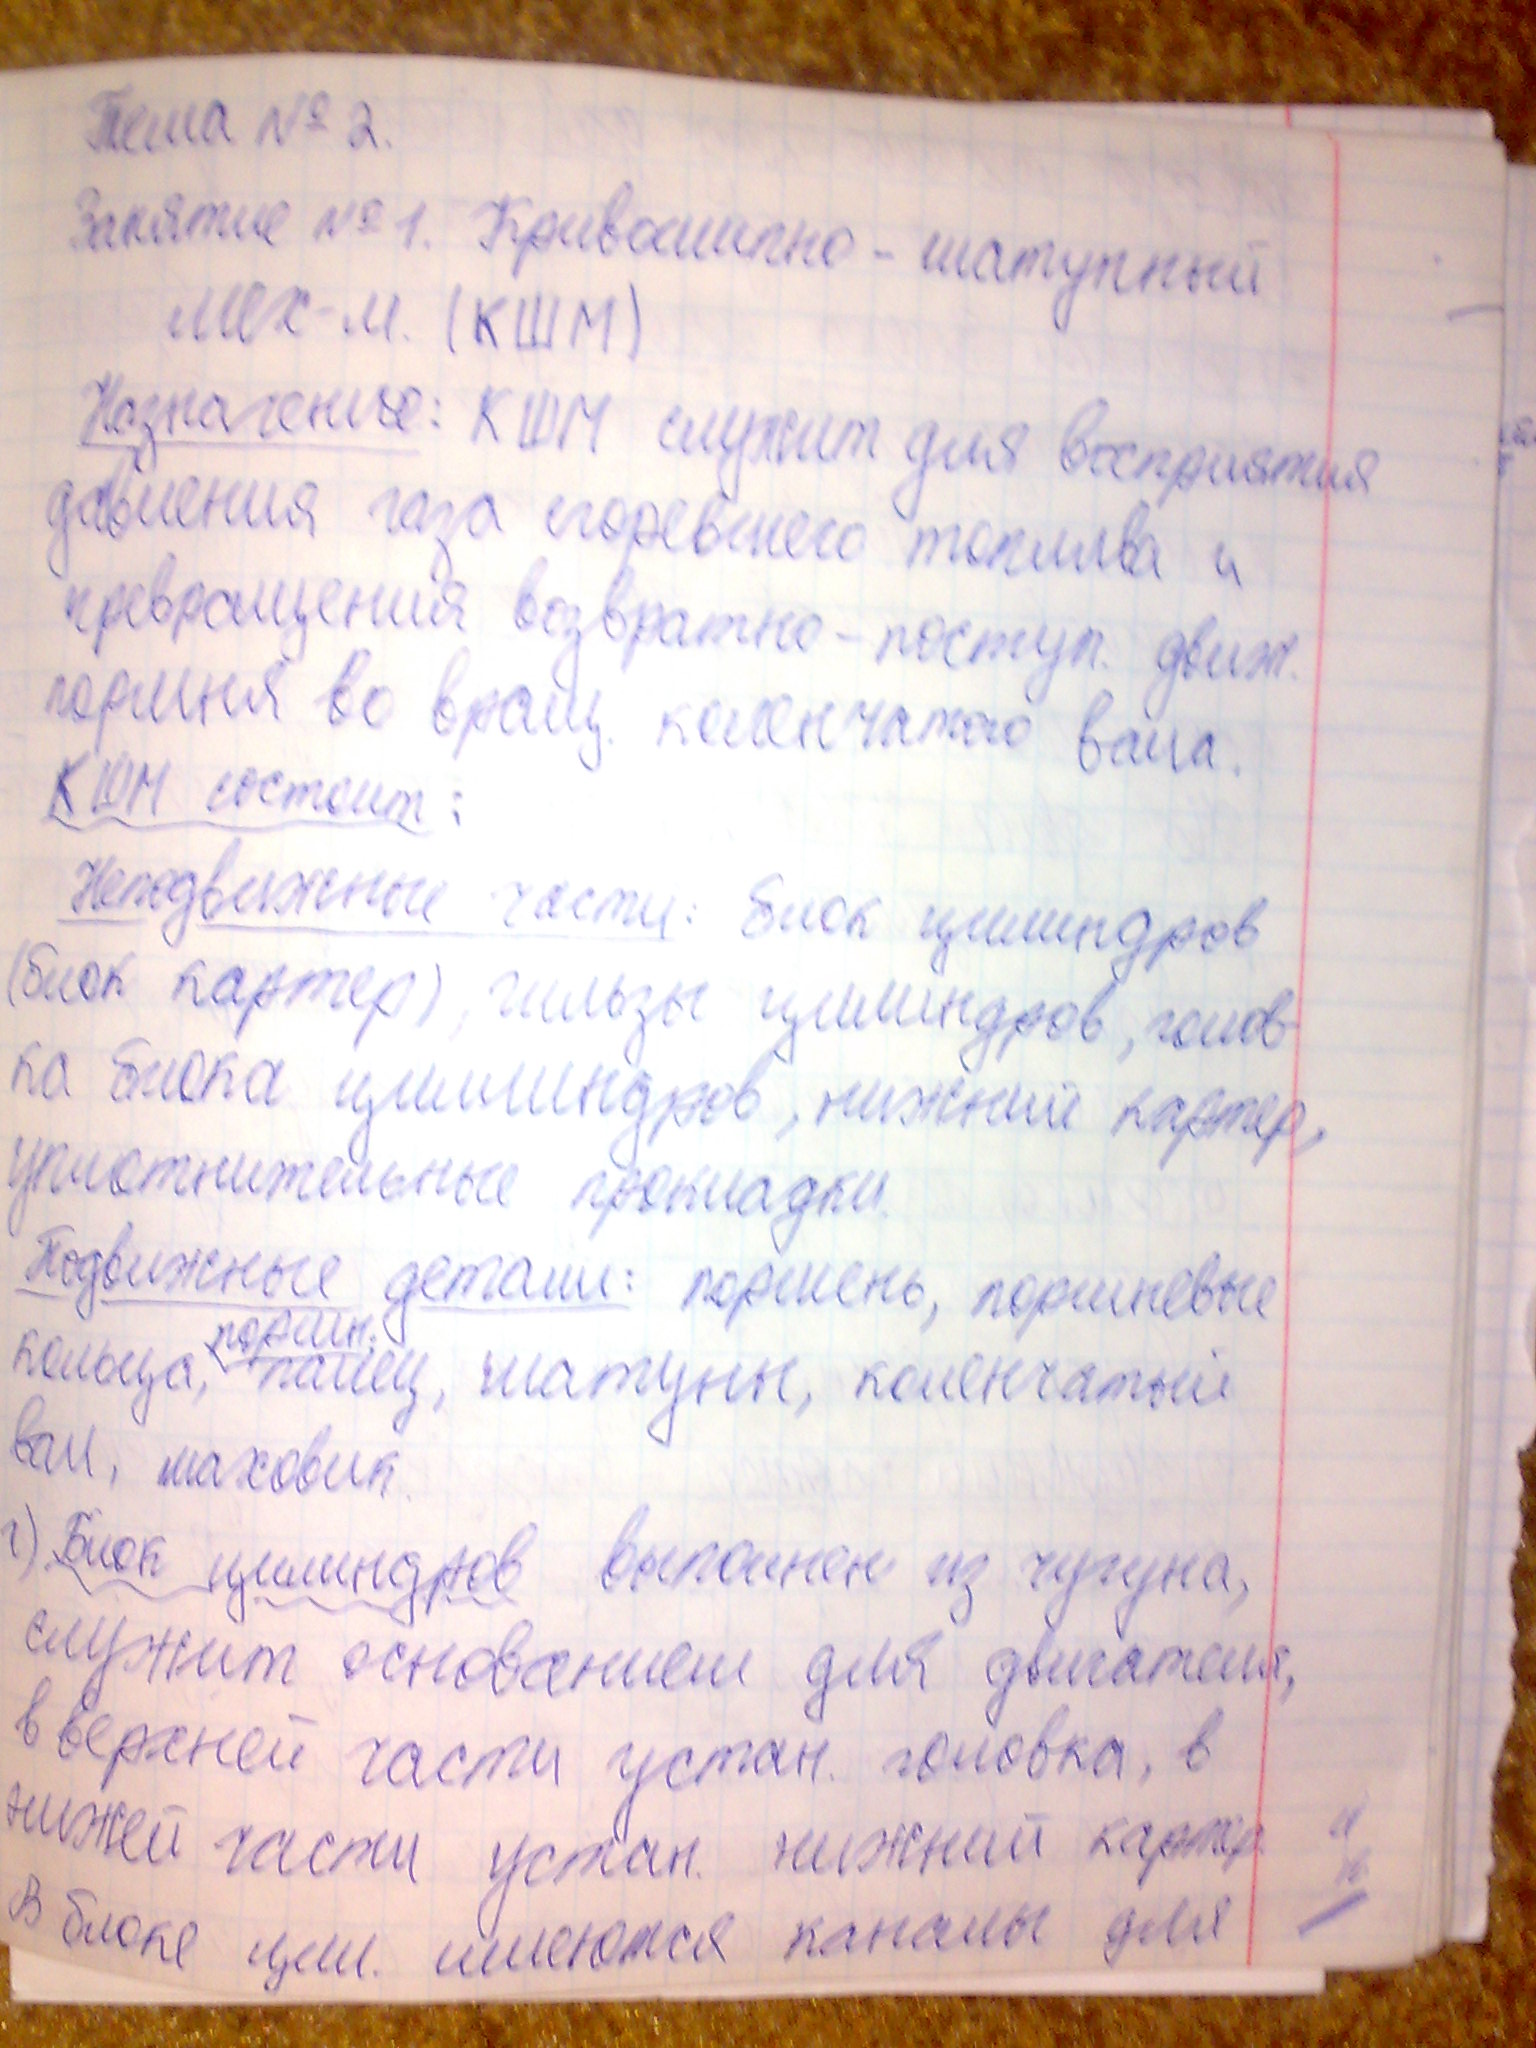 Тема № 2.
Занятие № 1. Кривошипно - шатунный
мех-м. (КШМ)
Назначение: КШМ служит для восприятия
давления газа сгоревшего топлива и
превращения возвратно - поступ. движ.
поршня во вращ. коленчатого вала.
КШМ состоит:
Неподвижные части: блок цилиндров
(блок картер), гильзы цилиндров, голов-
ка блока цилиндров, нижний картер,
уплотнительные прокладки.
Подвижные детали: поршень, поршневые
поршн.
кольца, палец, шатуны, коленчатый
вал, маховик.
1) Блок цилиндров выполнен из чугуна,
служит основанием для двигателя,
в верхней части устан. головка, в
нижей части устан. нижний картер
В блоке цил. имеются каналы для